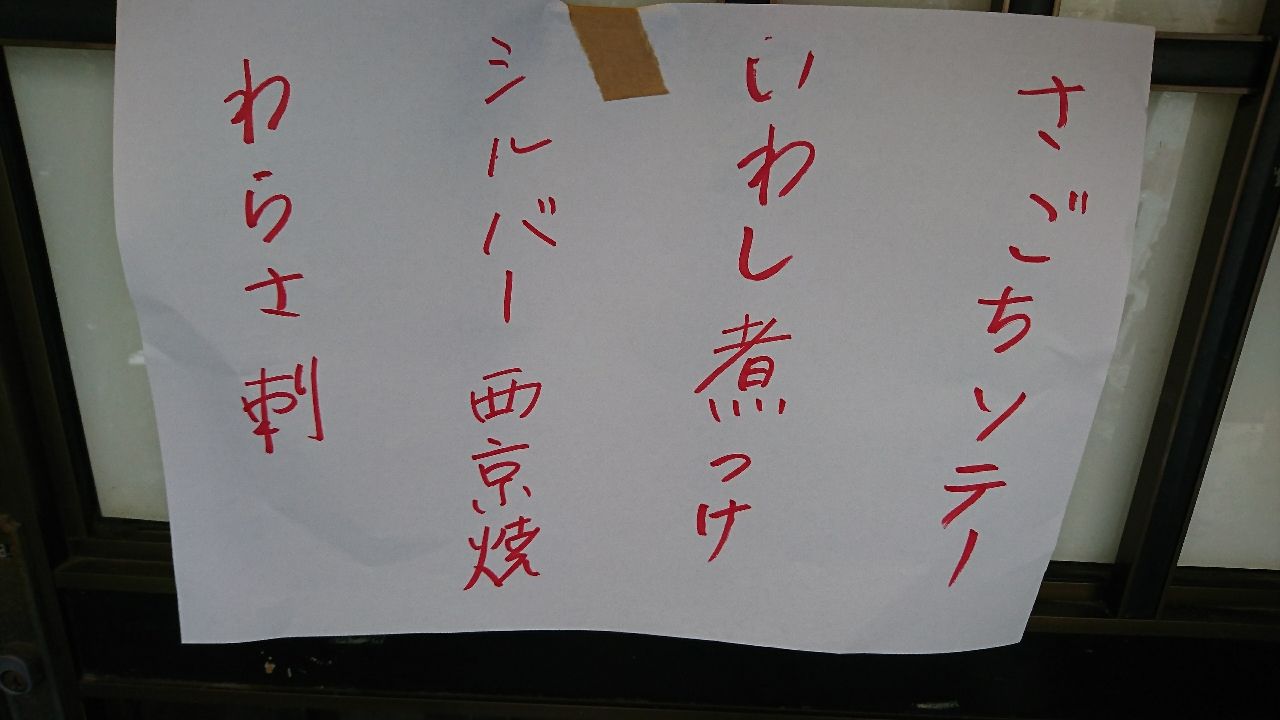 さごちソテー
いわし煮つけ
シルバー西京焼
わらさ刺